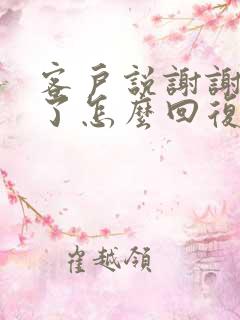 客戶説謝謝
了怎麽回復
崔越領